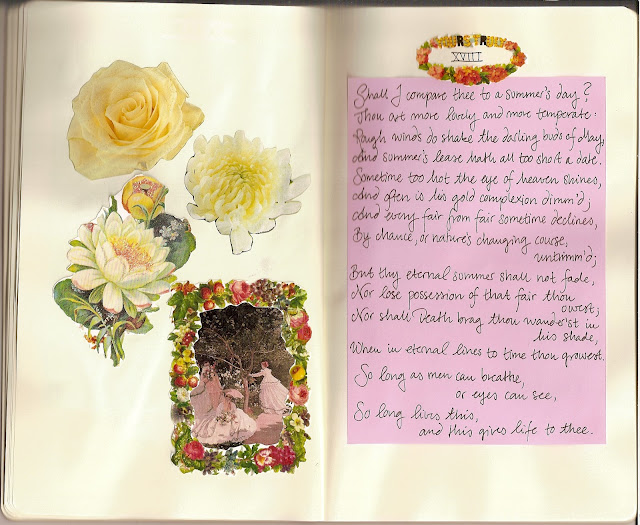 XVIII
Shall I compare thee to a summer's day?
Thou art more lovely and more temperate:
Rough winds do shake the darling buds of May,
And summer's lease hath all too short a date.
Sometime too hot the eye of heaven shines,
And often is his gold complexion dimm'd;
And every fair from fair sometime declines,
By chance, or nature's changing course,
untrimm'd;
But thy eternal summer shall not fade,
Nor lose possession of that fair thou
owest;
Nor shall Death brag thou wander'st in
his shade,
When in eternal lines to time thou growest.
So long as men can breathe,
or eyes can see,
So long lives this,
and this gives life to thee.